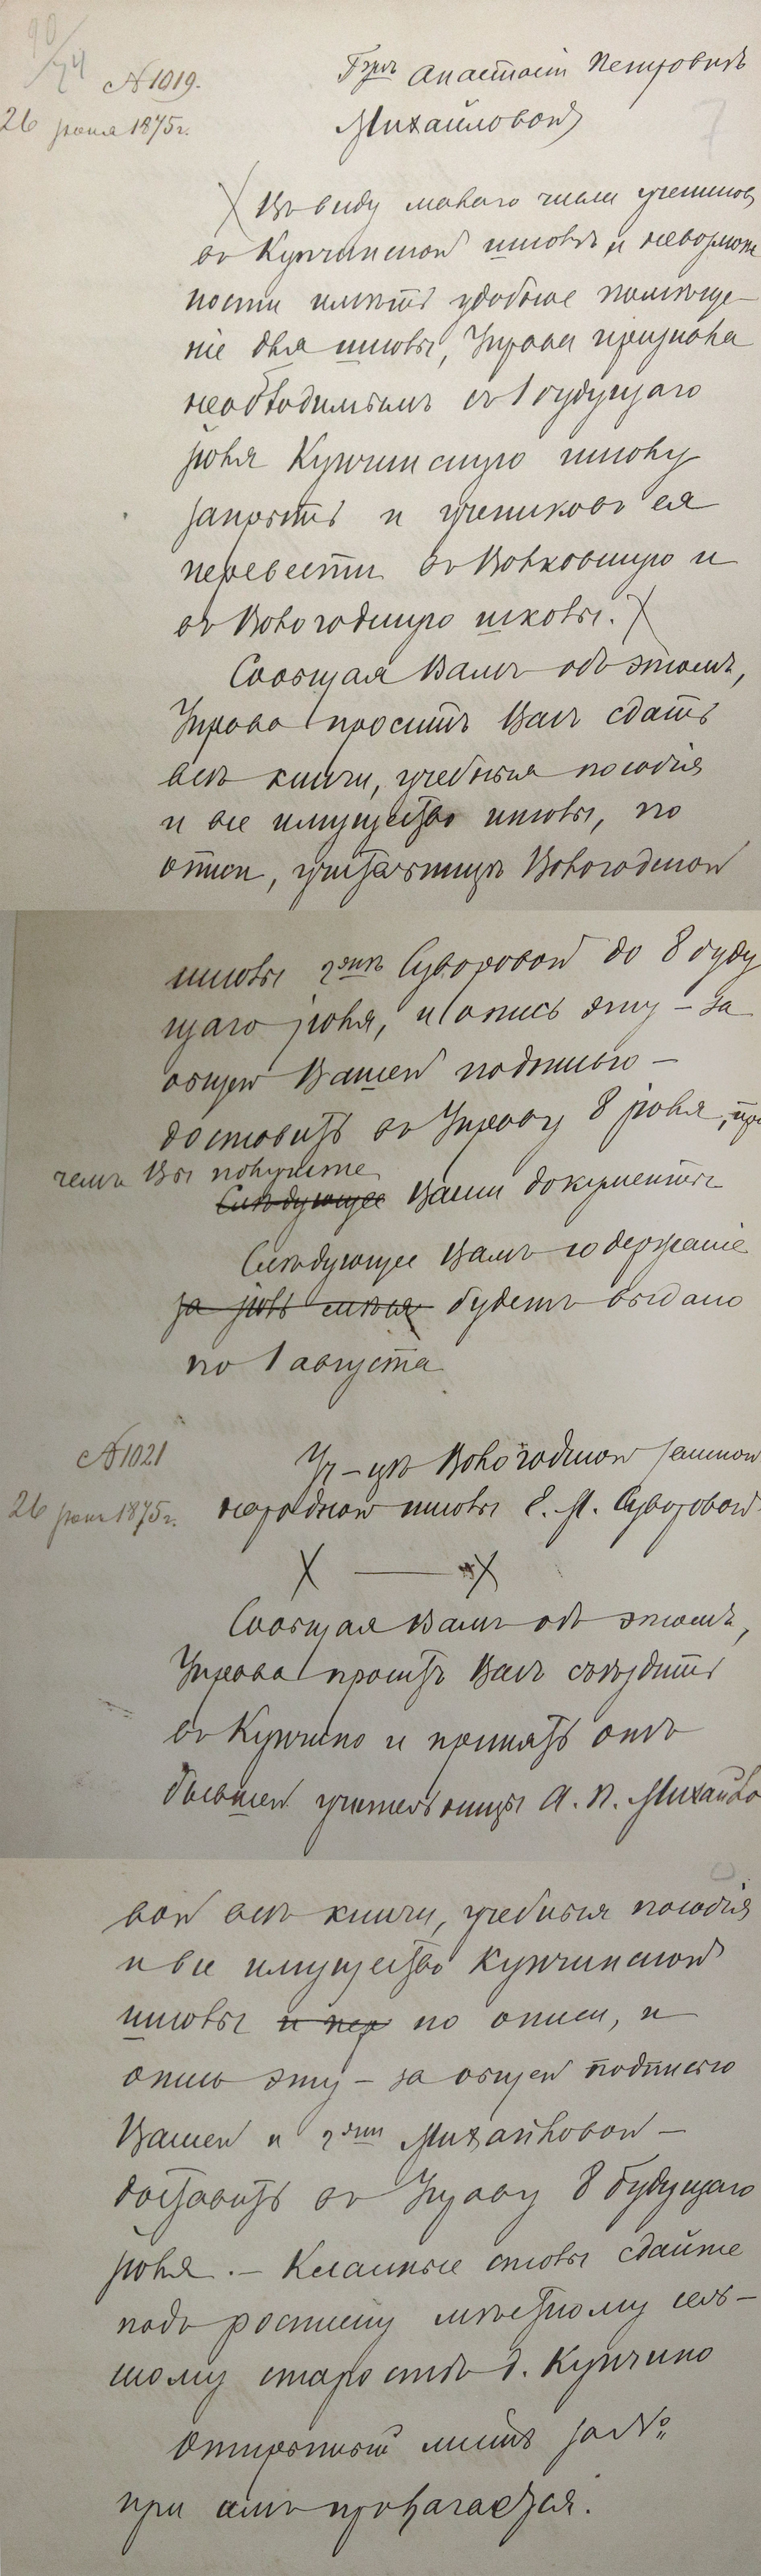 90/74
№ 1019.
26 іюня 1875 г.
Г-жѣ Анастасіи Петровнѣ
Михайловой
Въ виду малаго числа учениковъ
въ Купчинской школѣ и невозмож
ности имѣть удобное помѣще-
ніе для школы, Управа признала
необходимымъ съ 1 будущаго
іюля Купчинскую школу
закрыть и учениковъ ея
перевести въ Волковскую и
въ Вологодскую школы.
Сообщая Вамъ объ этомъ,
Управа проситъ Васъ сдать
всѣ книги, учебныя пособія
и все имущество школы, по
описи, учительницѣ Вологодской
школы г-жѣ Суворовой до 8 буду
щаго іюля, и опись эту – за
общей Вашей подписью –
доставить въ Управу 8 іюля, при
чемъ Вы получите
Слѣдующее Ваши документы
Слѣдующее Вамъ содержаніе
за іюль мѣсяц будетъ выдано
по 1 августа
№ 1021
26 іюня 1875 г.
Уч-цѣ Вологодской земской
народной школы Е. М. Суворовой
X — X
Сообщая Вамъ объ этомъ,
Управа проситъ Васъ съѣздить
въ Купчино и принять отъ
бывшей учительницы А. П. Михайло
вой всѣ книги, учебныя пособія
и все имущество Купчинской
школы и пер по описи, и
опись эту – за общей подписью
Вашей и г-жи Михайловой –
доставить въ Управу 8 будущаго
іюля. – Классные столы сдайте
подъ росписку мѣстному сель-
скому старостѣ д. Купчино
Открытый листъ за №
при семъ прилагается.